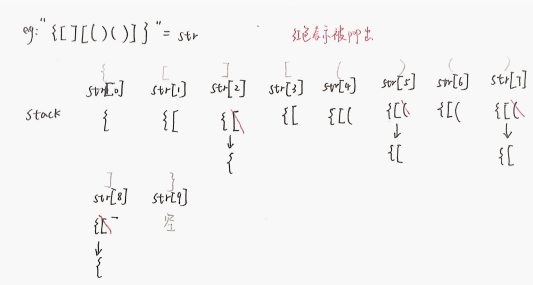 eg:"{[][()()]}"= str
红色表示被pop出
{ [ ] [ ( ) ( )
str[0] str[1] str[2] str[3] str[4] str[5] str[6] str[7]
stack { {[ {[ {[ {[( {[( {[( {[(
{ {[ {[
] }
str[8] str[9]
{[ 空
{